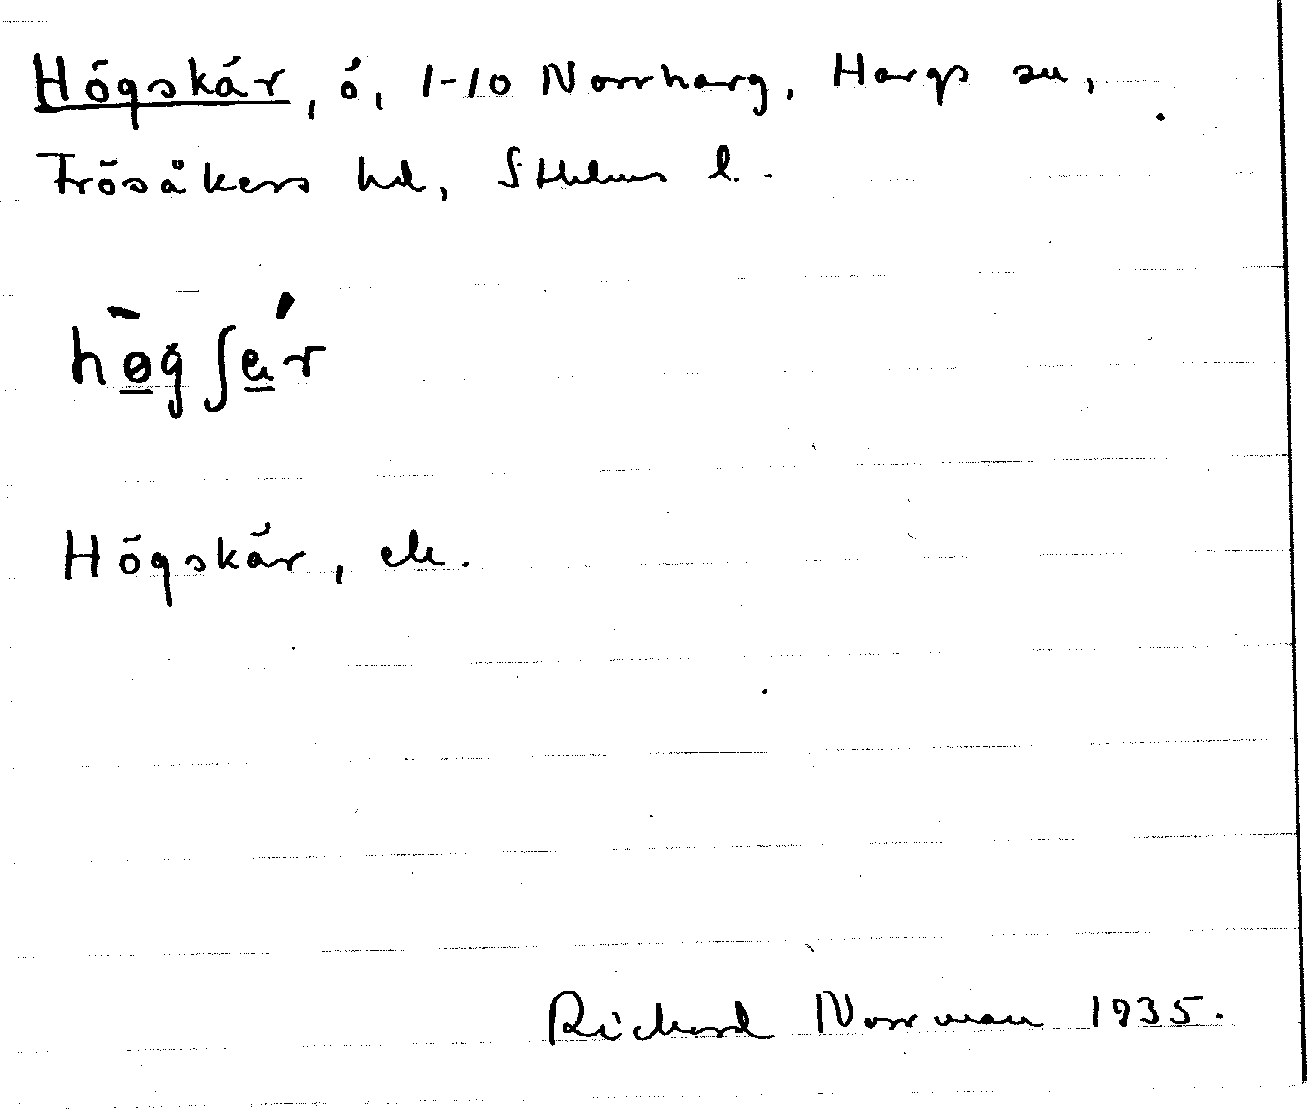 Högskär, ö, 1-10 Norrharg, Hargs sn,
Frösåkers hd, Sthlms l.
Högskär, ek.
Richard Norrman 1935.